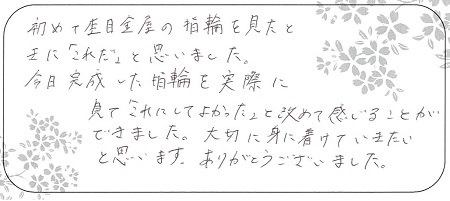 初めて杢目金屋の指輪を見たと
きに「これだ」と思いました。
今日完成した指輪を実際に
見て「これにしてよかった」と改めて感じることが
できました。大切に身に着けていきたい
と思います。ありがとうございました。